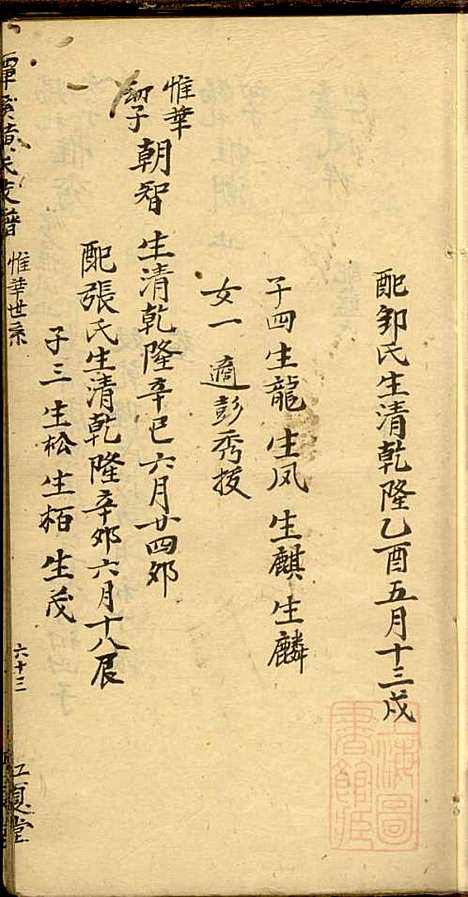 配邹氏生清乾隆乙酉五月十三戌
子四生龍生凤生麒生麟
女一適彭秀拔
惟華
子朝智生清乾隆辛巳六月廿四卯
配張氏生清乾隆辛卯六月十八辰
子三生松生栢生茂
黄氏支譜
惟華世系
六十三
江夏堂
上海圖書館藏